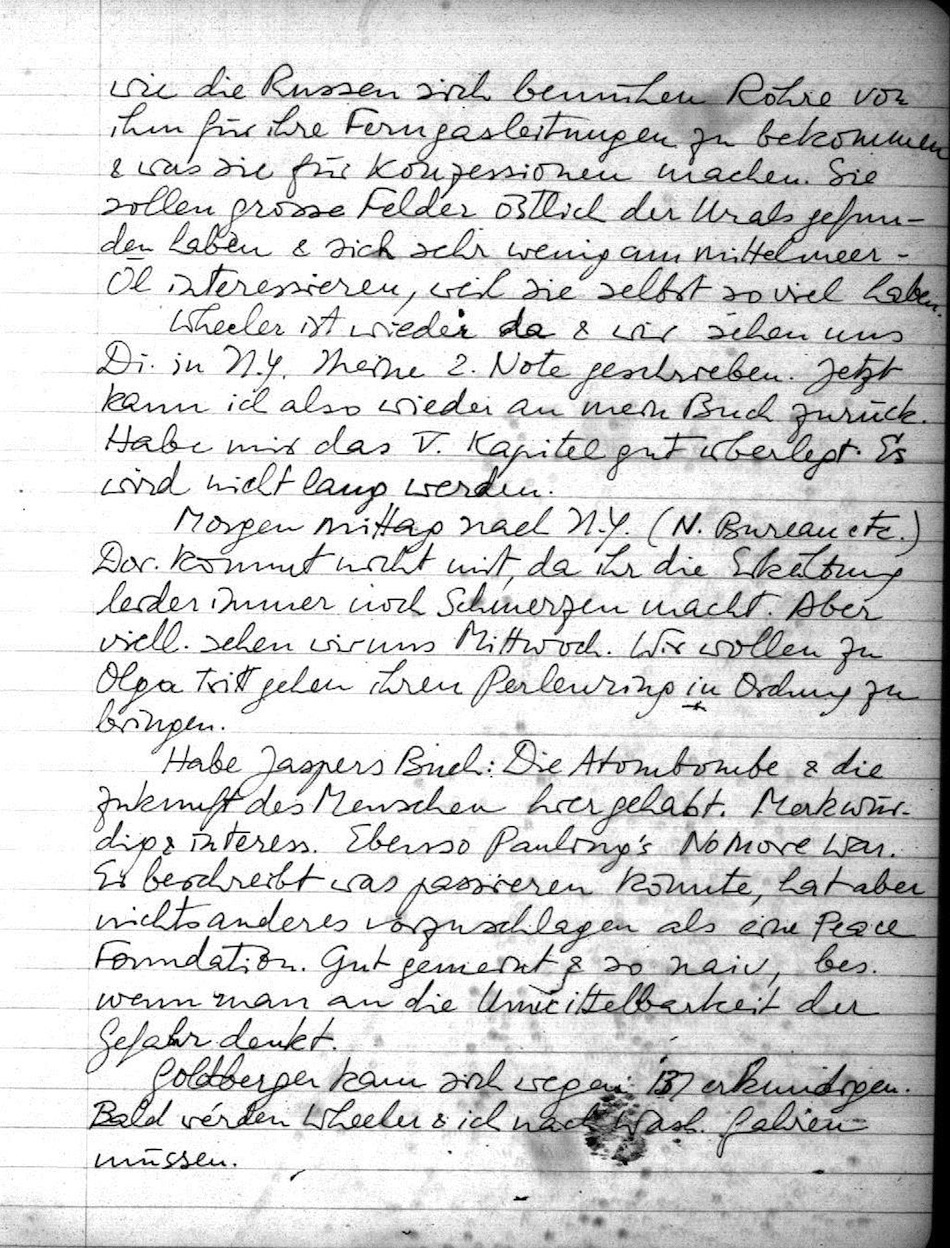 wie die Russen sich bemühen Rohre von
ihm für ihre Ferngasleitungen zu bekommen
& was sie für Konzessionen machen. Sie
sollen grosse Felder östlich der Urals gefun-
den haben & sich sehr wenig am Mittelmeer-
Öl interessieren, weil sie selbst so viel haben.
Wheeler ist wieder da & wir sehen uns
Di. in N.Y. Meine 2. Note geschrieben. Jetzt
kann ich also wieder an mein Buch zurück.
Habe mir das V. Kapitel gut überlegt. Es
wird nicht lang werden.
Morgen Mittag nach N.Y. (N. Bureau etc.)
Dor. kommt nicht mit, da ihr die Erkältung
leider immer noch Schmerzen macht. Aber
viell. sehen wir uns Mittwoch. Wir wollen zu
Olga Tritt gehen ihren Perlenring in Ordnung zu
bringen.
Habe Jaspers Buch: Die Atombombe & die
Zukunft des Menschen hier gehabt. Merkwür-
dig & interess. Ebenso Pauling's No More War.
Er beschreibt was passieren könnte, hat aber
nichts anderes vorzuschlagen als eine Peace
Foundation. Gut gemeint & so naiv, bes.
wenn man an die Unmittelbarkeit der
Gefahr denkt.
Goldberger kam sich wegen 137 erkundigen.
Bald werden Wheeler & ich nach Wash. fahren
müssen.